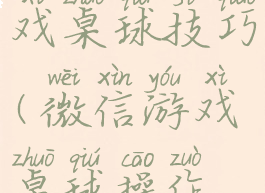 xì zhuō qiú jì qiǎo
戏桌球技巧
wēi xìn yóu xì
(微信游戏
zhuō qiú cāo zuò
桌球操作